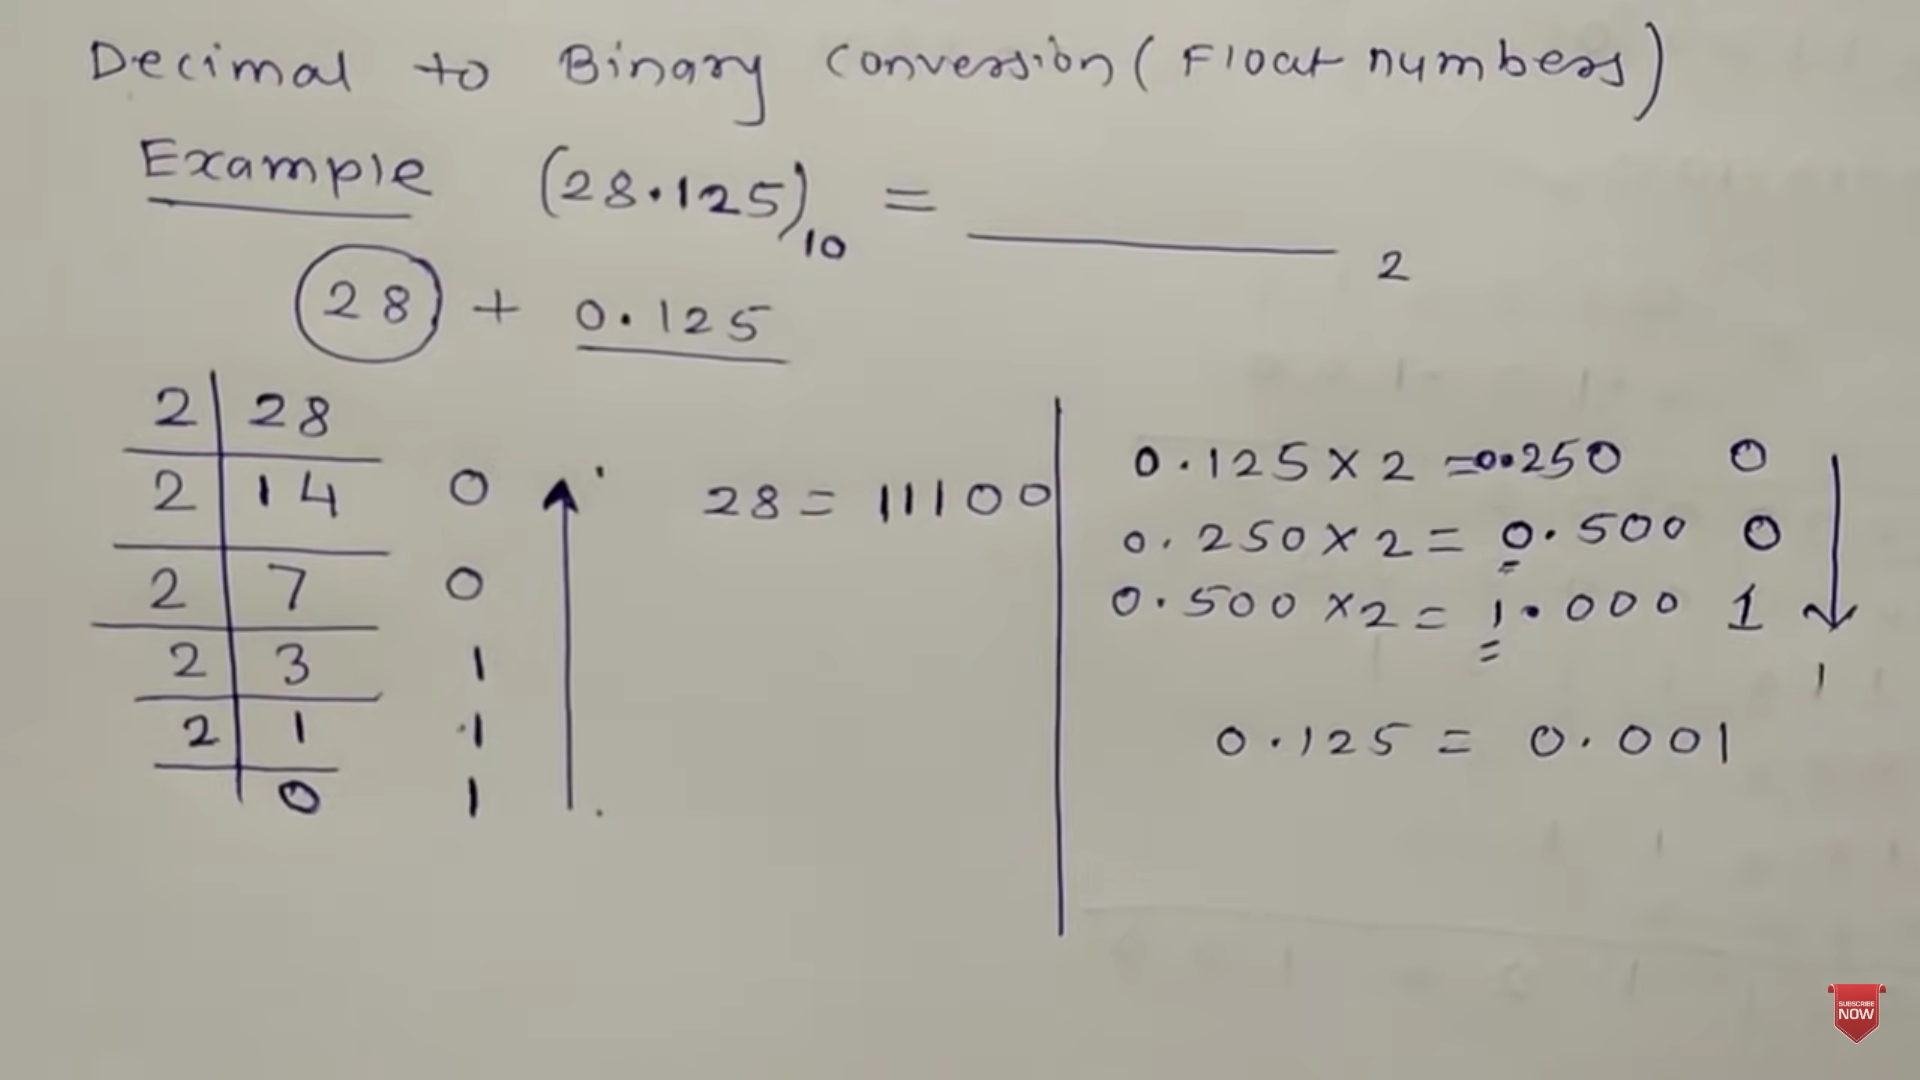 Decimal to Binary Conversion (Float numbers)
Example (28.125)10 = ________ 2
28 + 0.125
2 28
2 14 0
2 7 0
2 3 1
2 1 1
0 1
28 = 11100
0.125 x 2 = 0.250 0
0.250 x 2 = 0.500 0
0.500 x 2 = 1.000 1
0.125 = 0.001
SUBSCRIBE
NOW